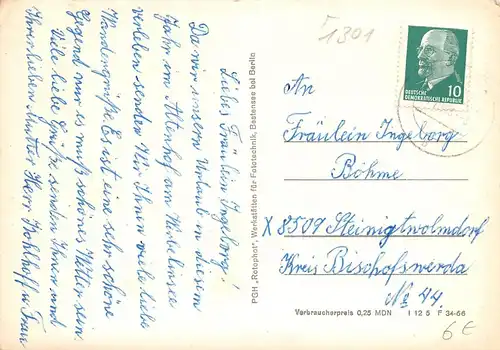 Liebes Fräulein Ingeborg!
Da wir unsern Urlaub in diesem
Jahr im Altenhof am Werbelinsee
verleben senden wir Ihnen viele liebe
Wandergrüße. Es ist eine sehr schöne
Gegend nur es muß schönes Wetter sein.
Viele liebe Grüße senden Ihnen und
Ihrer lieben Mutter Herr Kohlhoff u. Frau
PGH „Rotophot“, Werkstätten für Fototechnik, Bestensee bei Berlin
1301
DEUTSCHE
DEMOKRATISCHE REPUBLIK
10
An
Fräulein Ingeborg
Böhme
X 8509 Steinigtwolmdorf
Kreis Bischofswerda
No 44.
Verbraucherpreis 0,25 MDN I 12 5 F 34-66
6€